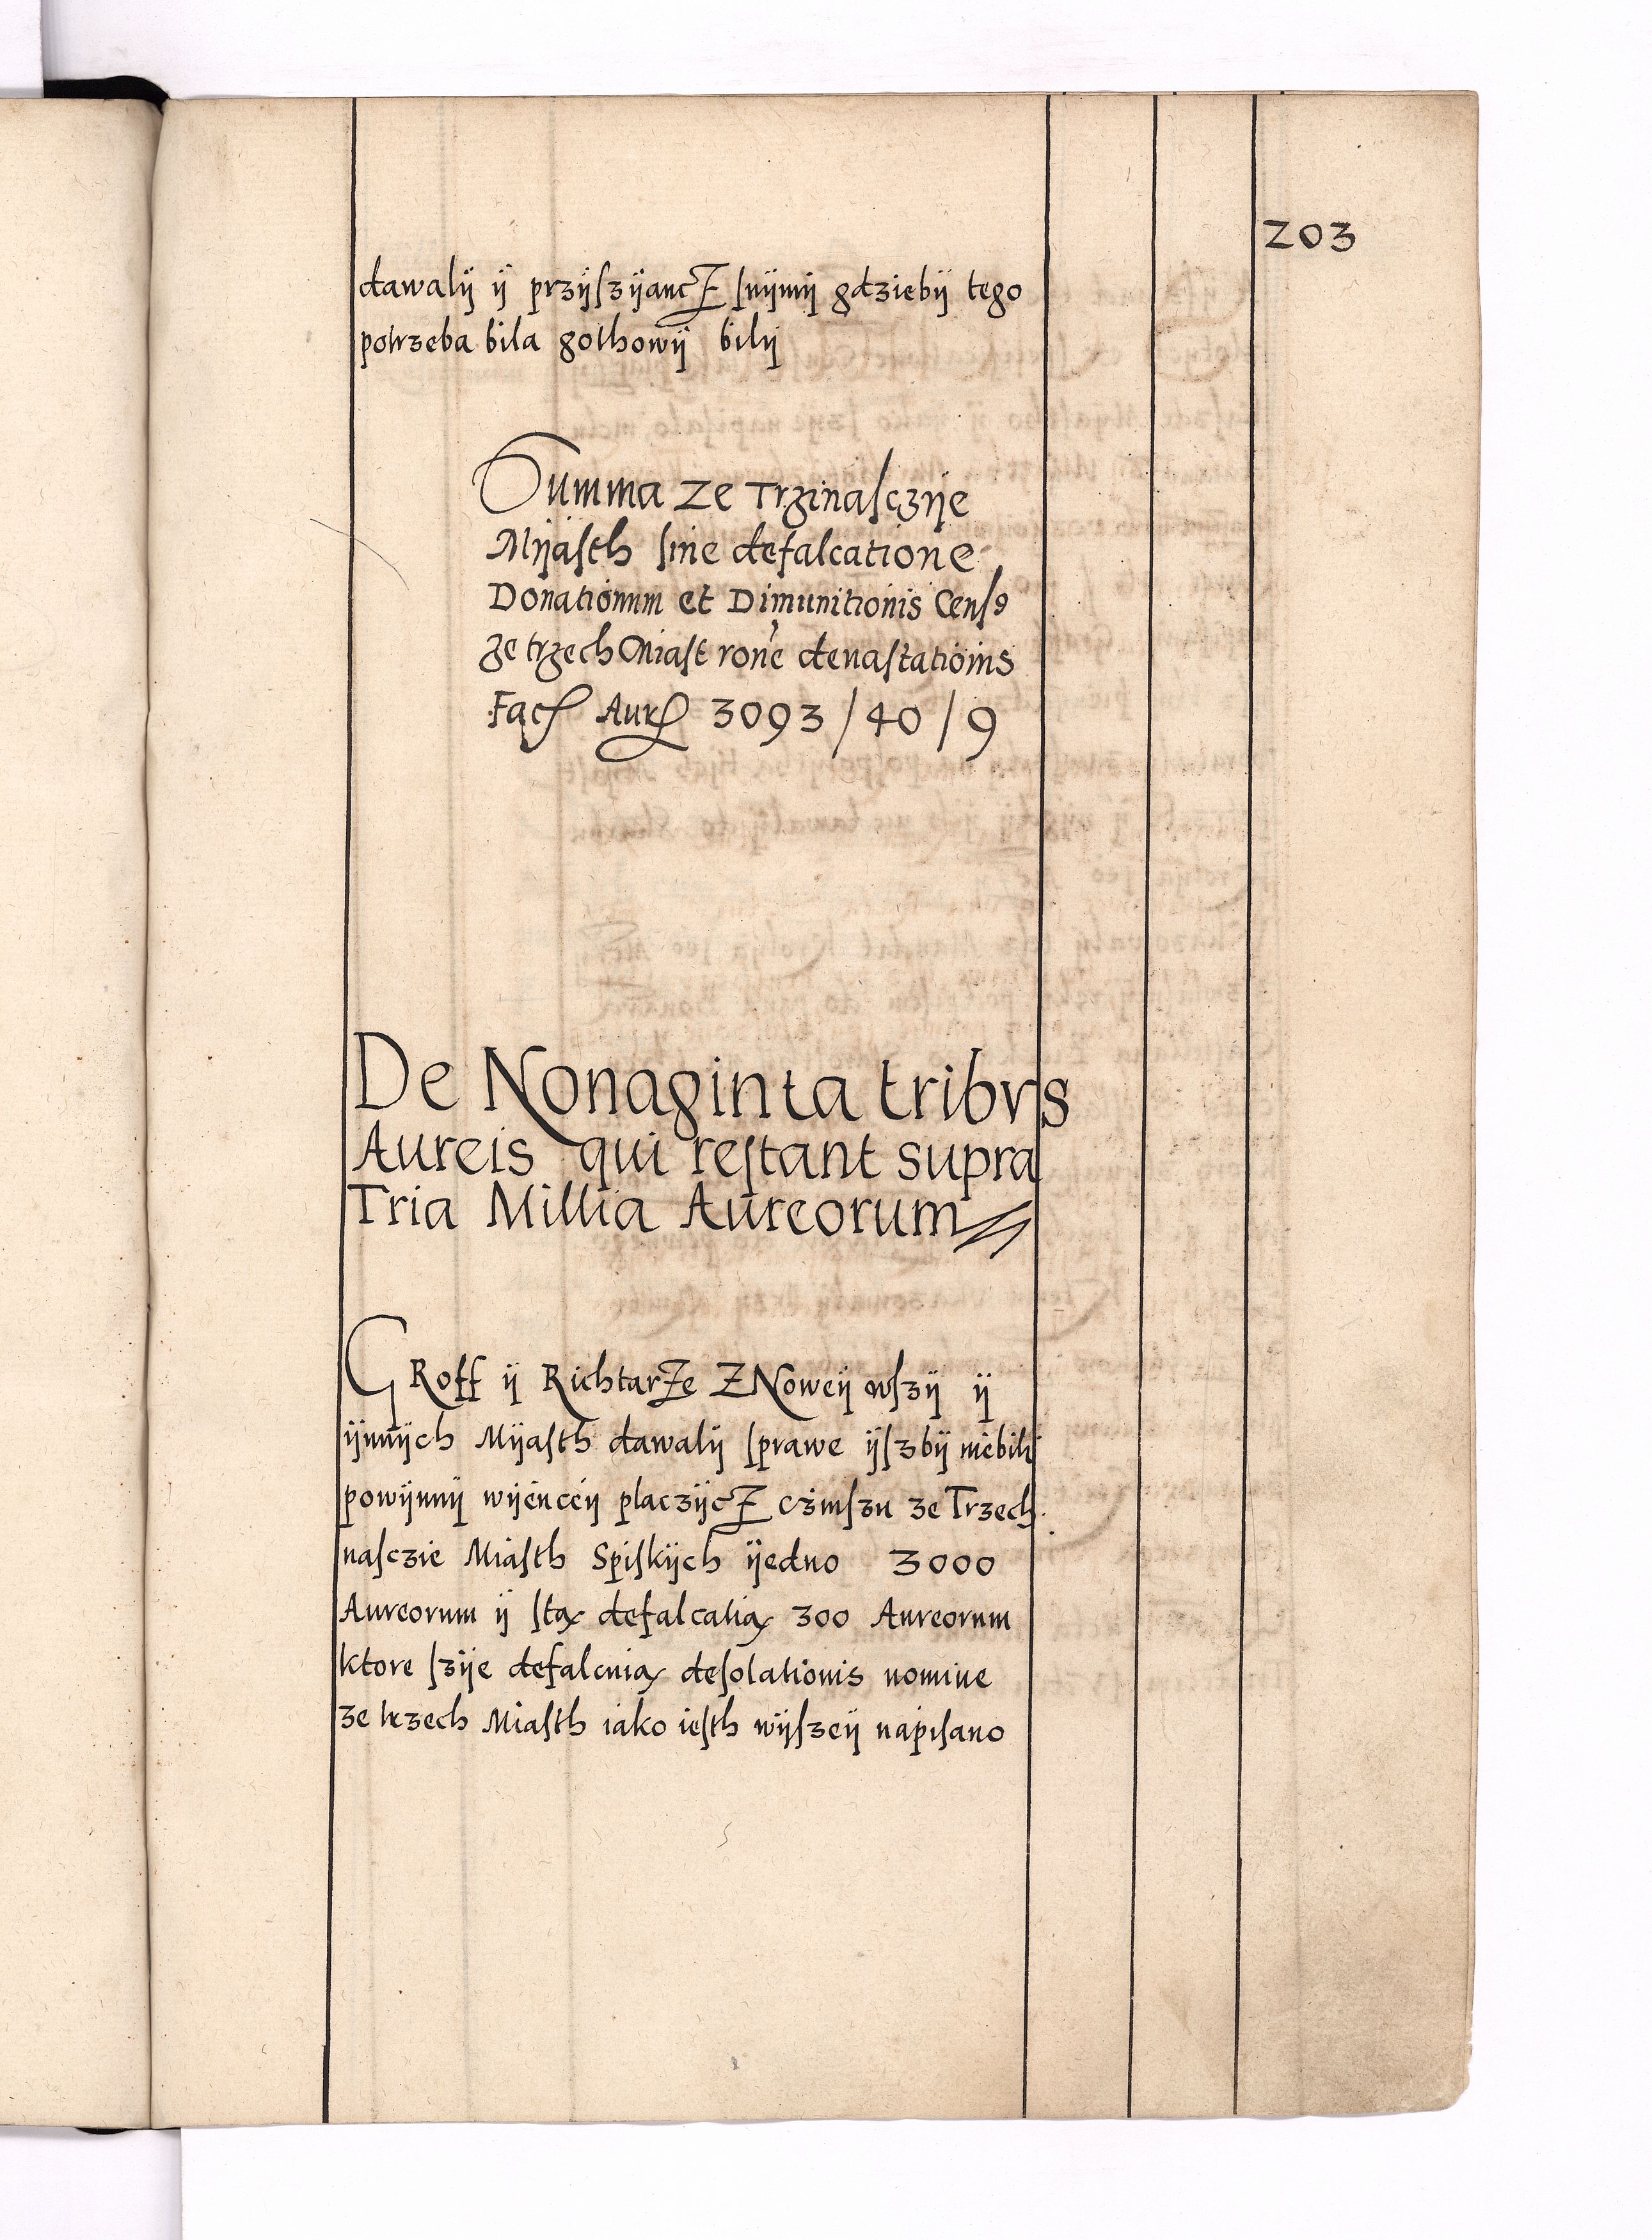 203
dawalÿ ÿ przÿſzÿancZ ſnÿmÿ gdziebÿ tego
potrzeba bila gothowÿ bilÿ
Summa Ze Trzinaſczÿe
Mÿaſth ſine defalcatione
Donationum et Dimunitionis Cenſ9
ze trzech Miaſt rone devaſtationis
Fac Aur 3093 / 40 / 9
De Nonaginta tribvs
Aureis qui reſtant supra
Tria Millia Aureorum
GRoff ÿ RichtarZe ZNoweÿ wſzÿ ÿ
ÿnnÿch Mÿaſth dawalÿ ſprawe ÿſzbÿ niebili
powÿnnÿ wÿenceÿ placzÿcZ czinſzu ze Trzech
naſczie Miaſth Spiſkÿch ÿedno 3000
Aureorum ÿ ſta defalcatia 300 Aureorum
ktore ſzÿe defalcuia deſolationis nomine
ze trzech Miaſth iako ieſth wÿſzeÿ napiſano